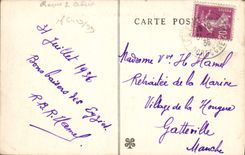 CARTE POSTALE
31 Juillet 1936
Bons baisers des Eyzies
R.R.R. Hamel
Madame Vve H. Hamel
Retraitée de la Marine
Village de la Hougue
Gatteville
Manche